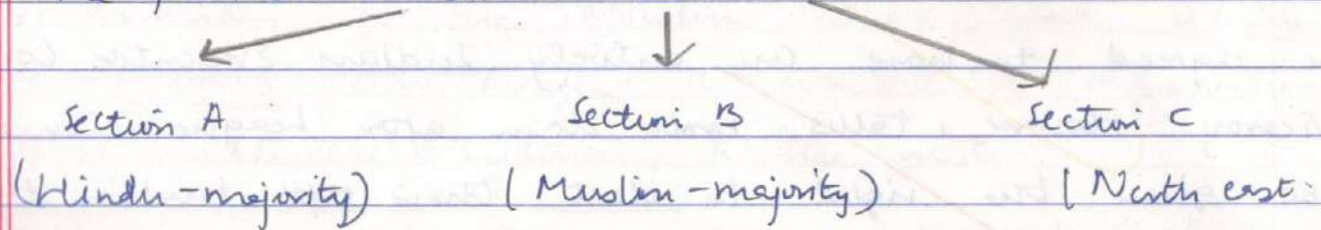 Section A Section B Section C
(Hindu-majority) (Muslim-majority) (North east: